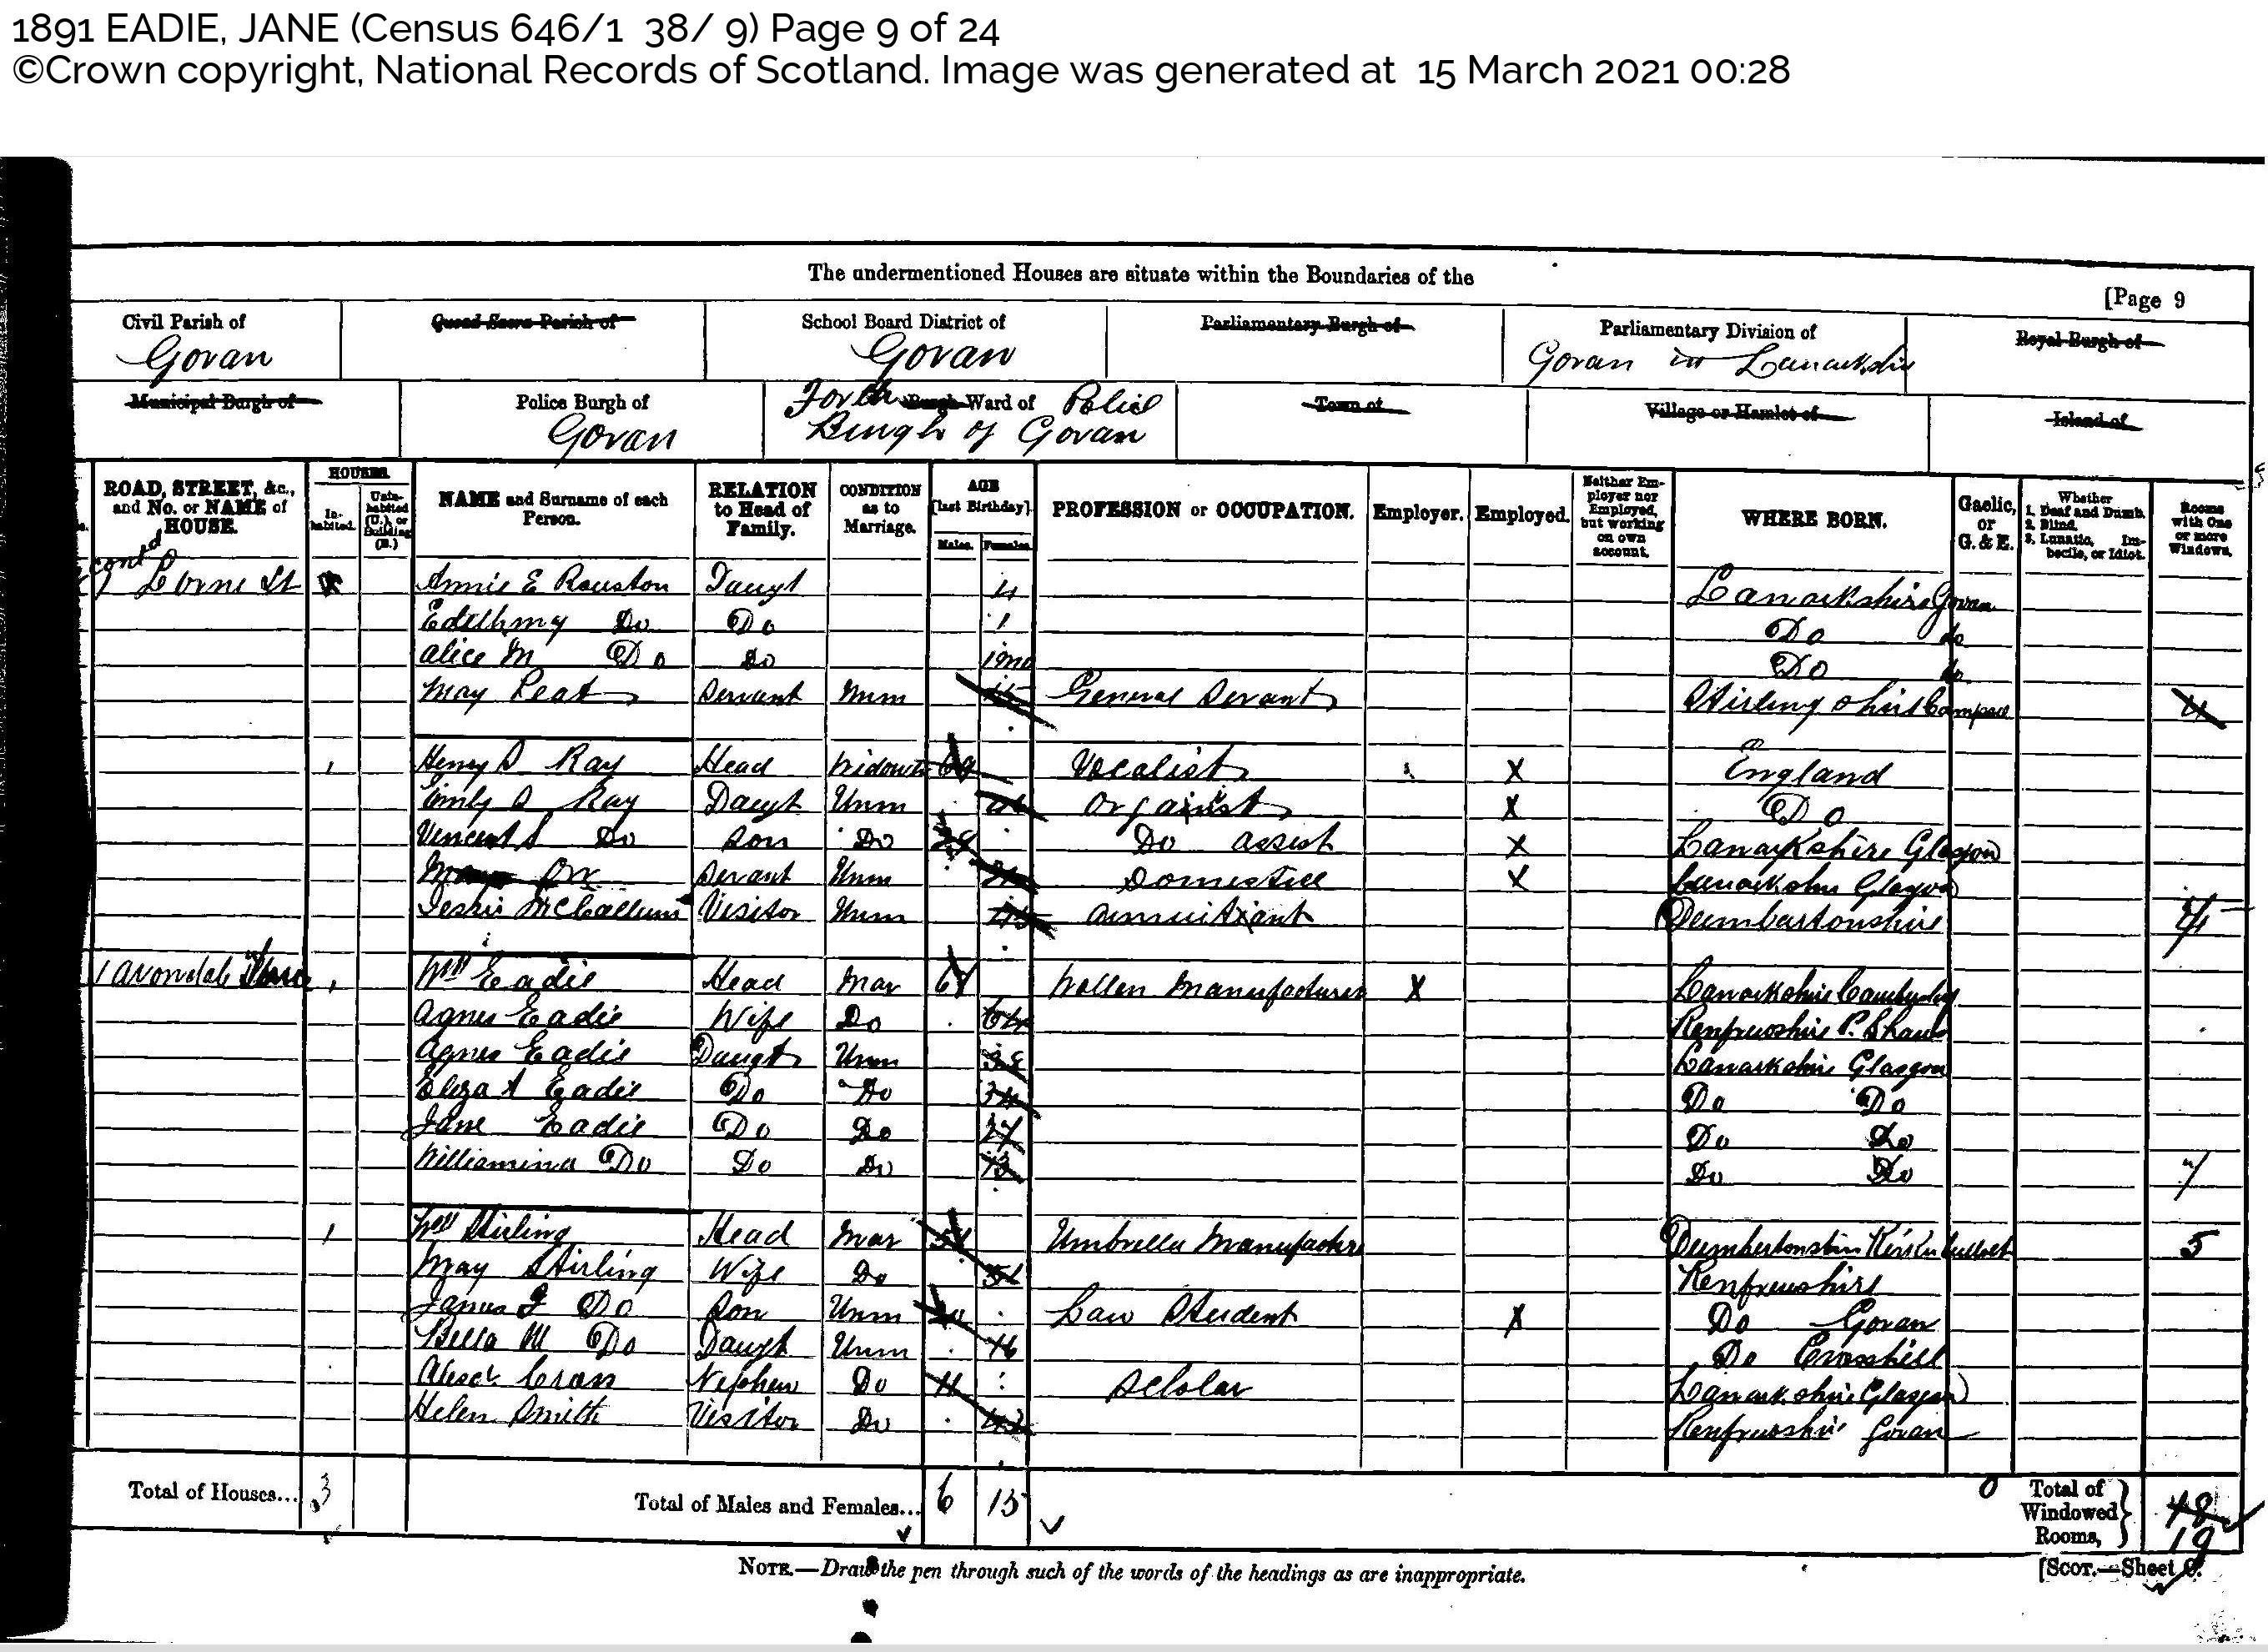 1891 EADIE, JANE (Census 646/1 38/ 9) Page 9 of 24
©Crown copyright, National Records of Scotland. Image was generated at 15 March 2021 00:28
The undermentioned Houses are situate within the Boundaries of the
[Page 9
Civil Parish of Quoad Sacra Parish of School Board District of Parliamentary Burgh of Parliamentary Division of Royal Burgh of
Govan Govan Govan in Lanarkshire
Municipal Burgh of Police Burgh of Burgh Ward of Police Town of Village or Hamlet of Island of
Govan Burgh of Govan
ROAD, STREET, &c., and No. or NAME of HOUSE. HOUSES. Inhabited. Uninhabited (U.), or Building (B.) NAME and Surname of each Person. RELATION to Head of Family. CONDITION as to Marriage. AGE [last Birthday]. Males. Females. PROFESSION or OCCUPATION. Employer. Employed. Neither Employer nor Employed, but working on own account. WHERE BORN. Gaelic, or G. & E. Whether 1. Deaf and Dumb. 2. Blind. 3. Lunatic, Imbecile, or Idiot. Rooms with One or more Windows.
contd Lorne St Annie E Rouston Daugt 4 Lanarkshire Govan
Do Do 1 Do do
Alice M Do Do 1 mo Do do
May Peat Servant Unm 15 General Servant Stirlingshire 4
1 Henry D Ray Head Vocalist X England
Emily D Ray Daugt Unm Organist X Do
Vincent S Do Son Do Do assist X Lanarkshire Glasgow
Orr Servant Unm Domestic X Lanarkshire Glasgow
McCallum Visitor Unm annuitant Dumbartonshire 4
1 Avondale 1 Wm Eadie Head Mar Wollen Manufacturer X Lanarkshire
Agnes Eadie Wife Do 64 Renfrewshire P. Shaws
Agnes Eadie Daugt Unm 38 Lanarkshire Glasgow
Eliza A Eadie Do Do 34 Do Do
Jane Eadie Do Do 27 Do Do
Williamina Do Do Do Do Do 7
1 Wm Stirling Head Mar Umbrella Manufactr Dumbartonshire 5
May Stirling Wife Do 51 Renfrewshire
James F Do Son Unm Law Student X Do Govan
Bella M Do Daugt Unm 16 Do Crosshill
Alexr Cran Nephew Do 11 Scholar Lanarkshire Glasgow
Helen Smith Visitor Do Renfrewshire Govan
Total of Houses... 3 Total of Males and Females... 6 15 0 Total of Windowed Rooms, 18 19
NOTE.—Draw the pen through such of the words of the headings as are inappropriate.
[SCOT.—Sheet